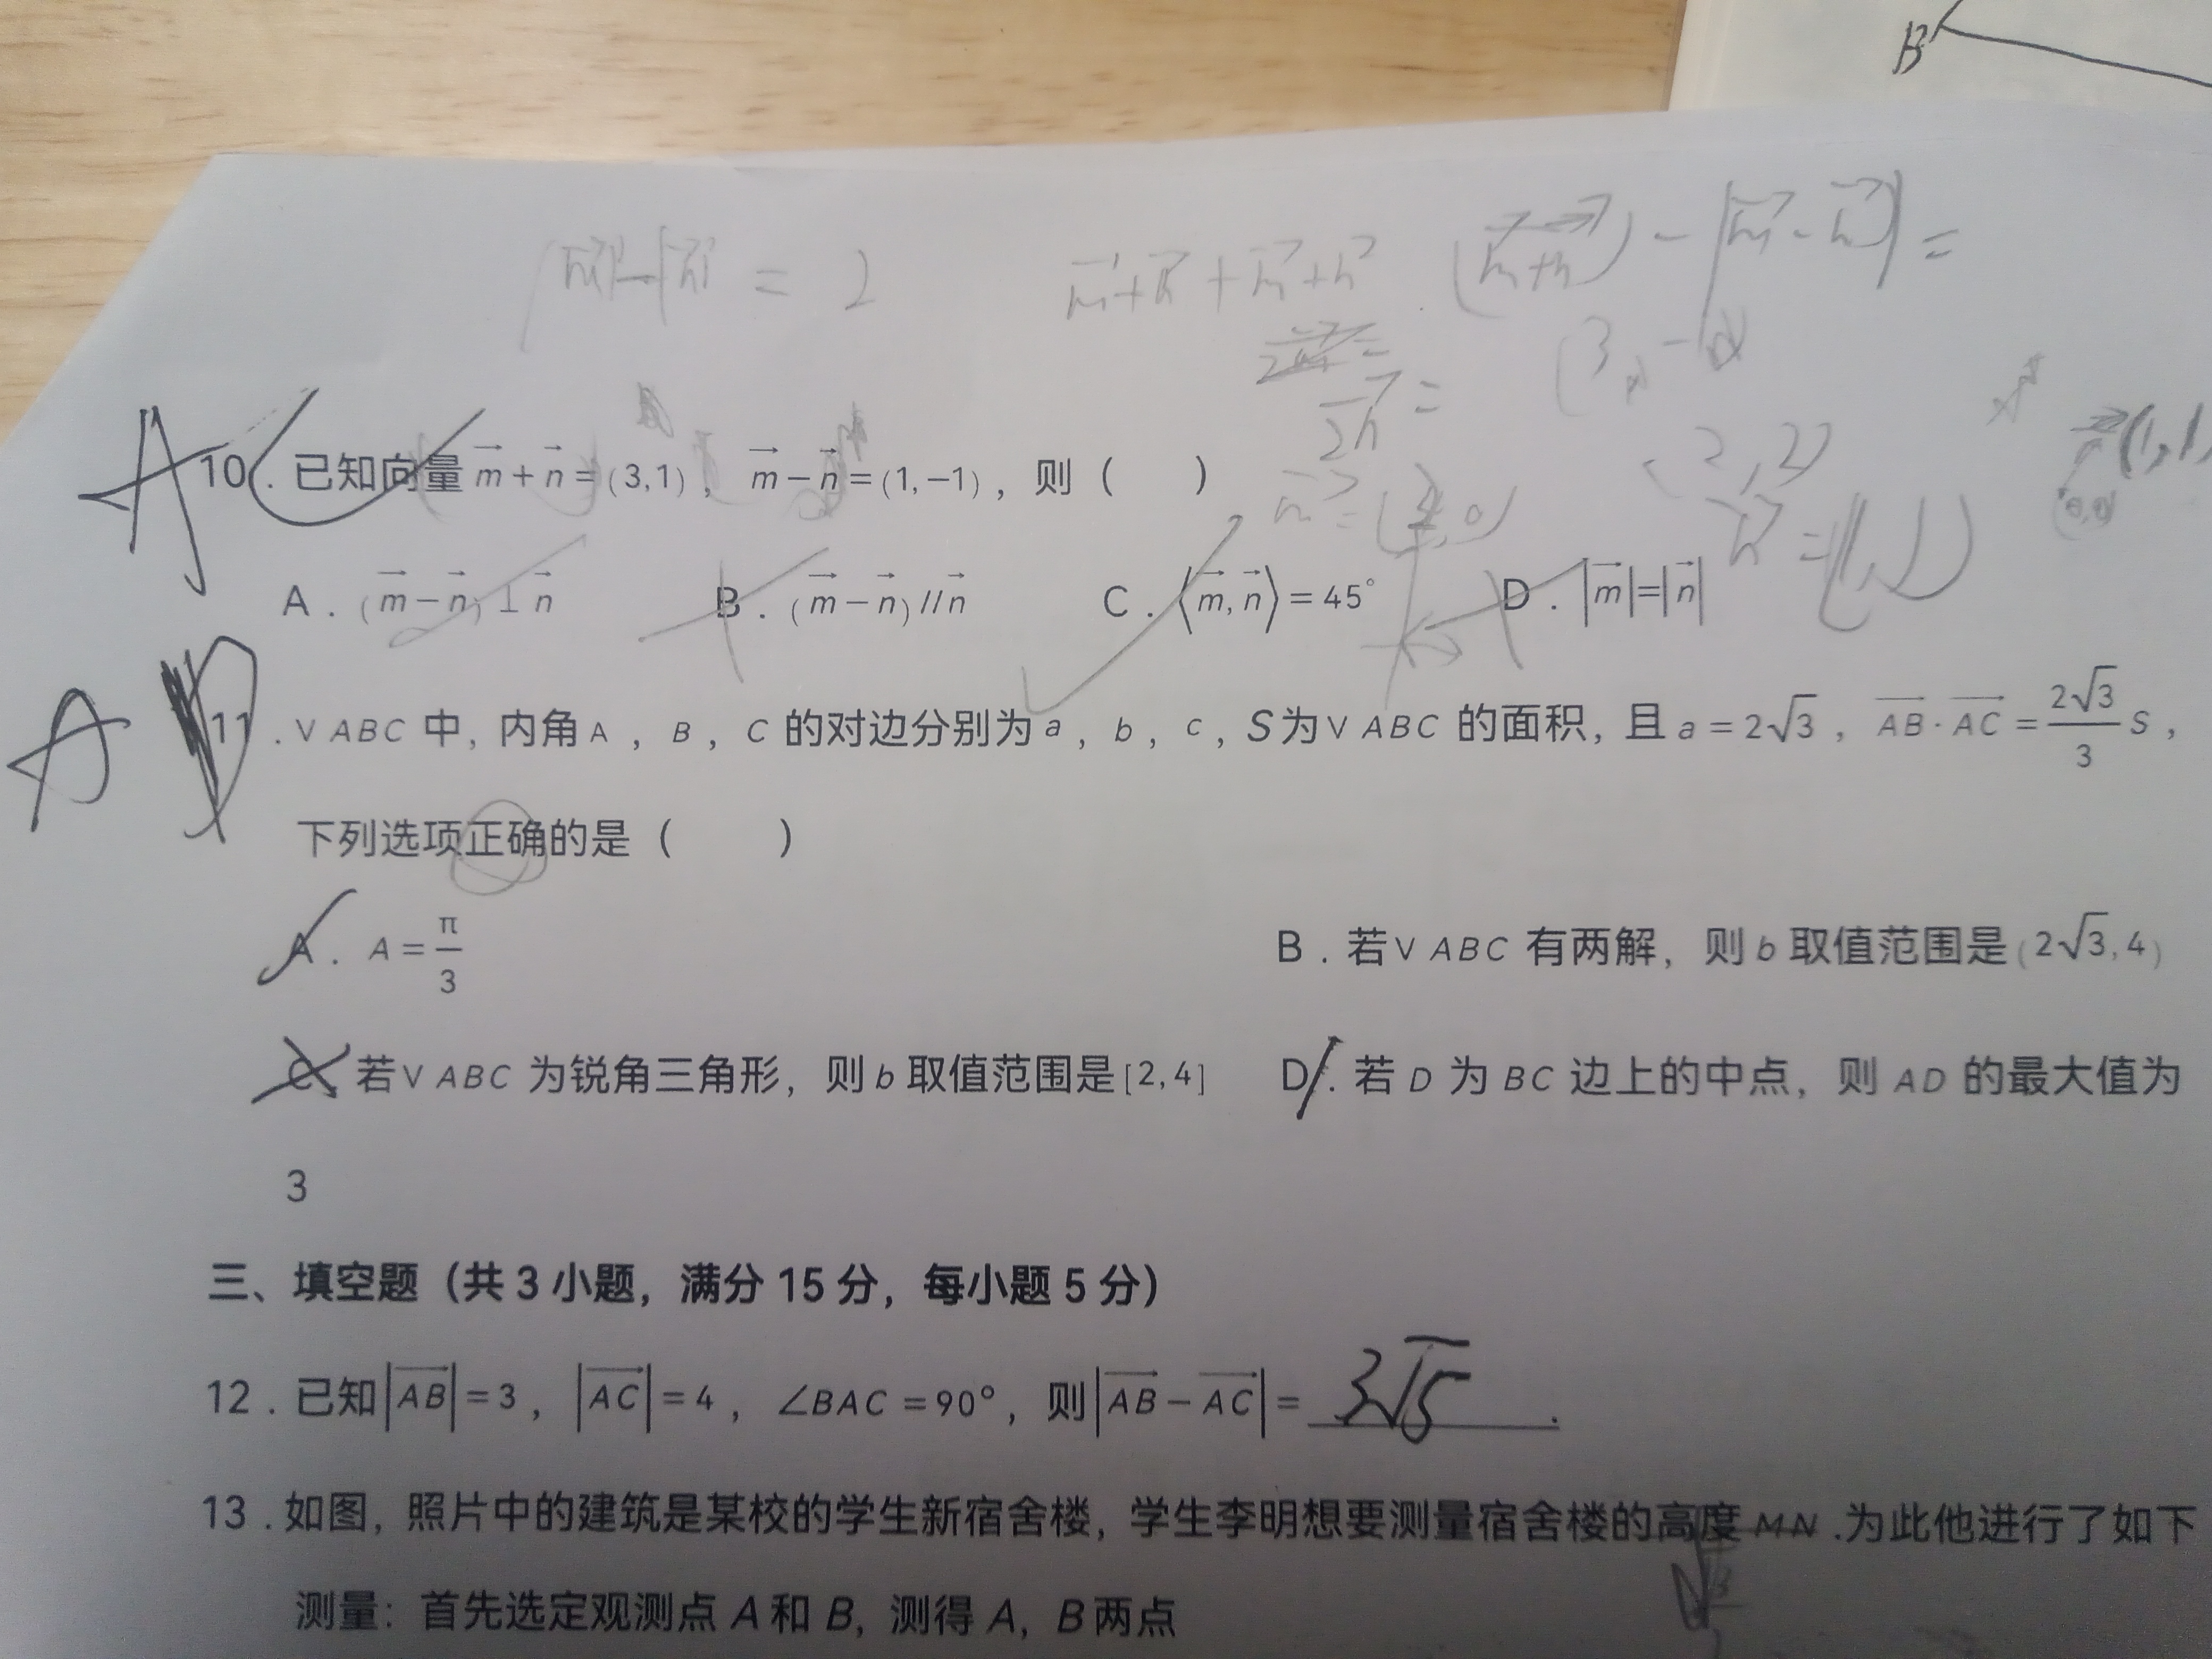 B
|m⃗|-|n⃗| = 2 m⃗+n⃗+m⃗+n⃗ (m⃗+n⃗) - |m⃗-n⃗| =
2n⃗ =
(2,2)
(1,1)
A C
10.已知向量 m⃗+n⃗=(3,1),m⃗-n⃗=(1,-1),则( )
n⃗=(1,1)
A.(m⃗-n⃗)⊥n⃗ B.(m⃗-n⃗)//n⃗ C.⟨m⃗,n⃗⟩=45° D.|m⃗|=|n⃗|
A D
11.V ABC 中,内角A,B,C 的对边分别为a,b,c,S为V ABC 的面积,且a=2√3,AB⃗·AC⃗=2√3/3 S,
下列选项正确的是( )
A.A=π/3 B.若V ABC 有两解,则b取值范围是(2√3,4)
C.若V ABC 为锐角三角形,则b取值范围是[2,4] D.若D为BC边上的中点,则AD的最大值为
3
三、填空题(共3小题,满分15分,每小题5分)
12.已知|AB⃗|=3,|AC⃗|=4,∠BAC=90°,则|AB⃗-AC⃗|=3√5.
13.如图,照片中的建筑是某校的学生新宿舍楼,学生李明想要测量宿舍楼的高度MN.为此他进行了如下
测量:首先选定观测点A和B,测得A,B两点